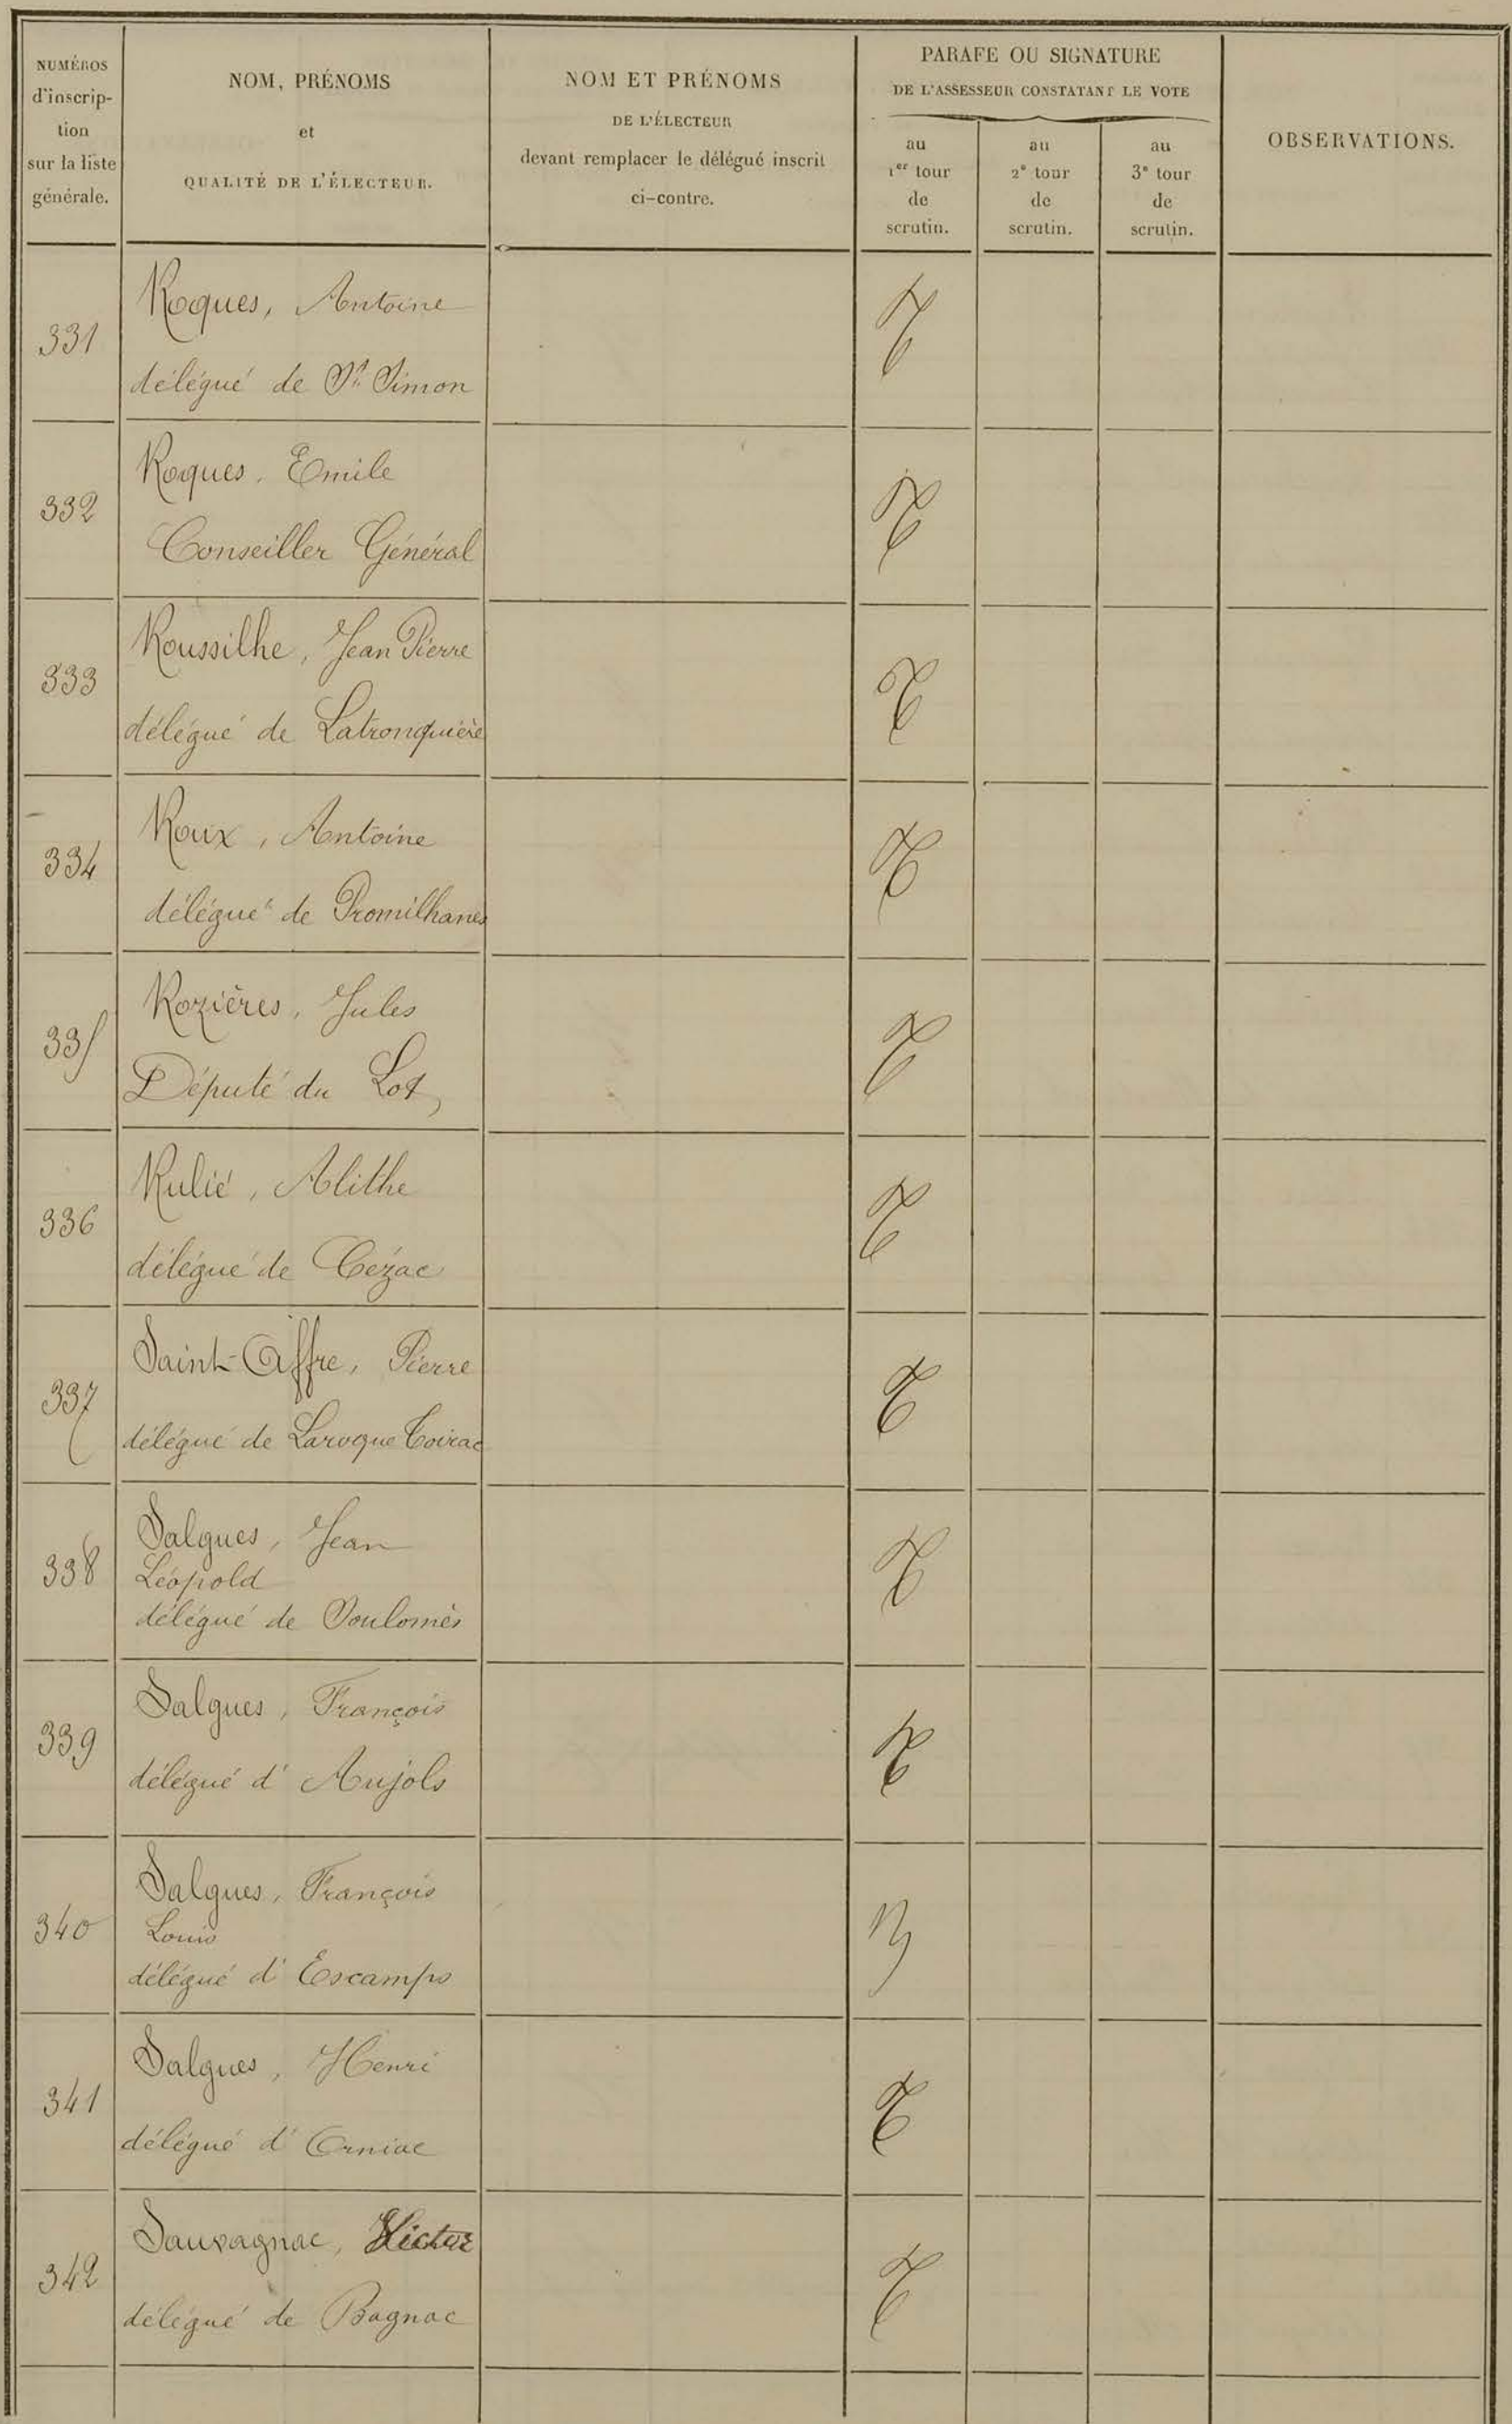 NUMÉROS
d'inscrip-
tion
sur la liste
générale.
NOM, PRÉNOMS
et
QUALITÉ DE L'ÉLECTEUR.
NOM ET PRÉNOMS
DE L'ÉLECTEUR
devant remplacer le délégué inscrit
ci-contre.
PARAFE OU SIGNATURE
DE L'ASSESSEUR CONSTATANT LE VOTE
au
1er tour
de
scrutin.
au
2e tour
de
scrutin.
au
3e tour
de
scrutin.
OBSERVATIONS.
331
Roques, Antoine
délégué de St. Simon
332
Roques, Emile
Conseiller Général
333
Roussilhe, Jean Pierre
délégué de Latronquière
334
Roux, Antoine
délégué de Promilhanes
335
Rozières, Jules
Député du Lot
336
Rulié, Alithe
délégué de Cézac
337
Saint-Affre, Pierre
délégué de Laroque Toirac
338
Salgues, Jean
Léopold
délégué de Soulomès
339
Salgues, François
délégué d'Aujols
340
Salgues, François
Louis
délégué d'Escamps
341
Salgues, Henri
délégué d'Orniac
342
Sauvagnac,
délégué de Bagnac